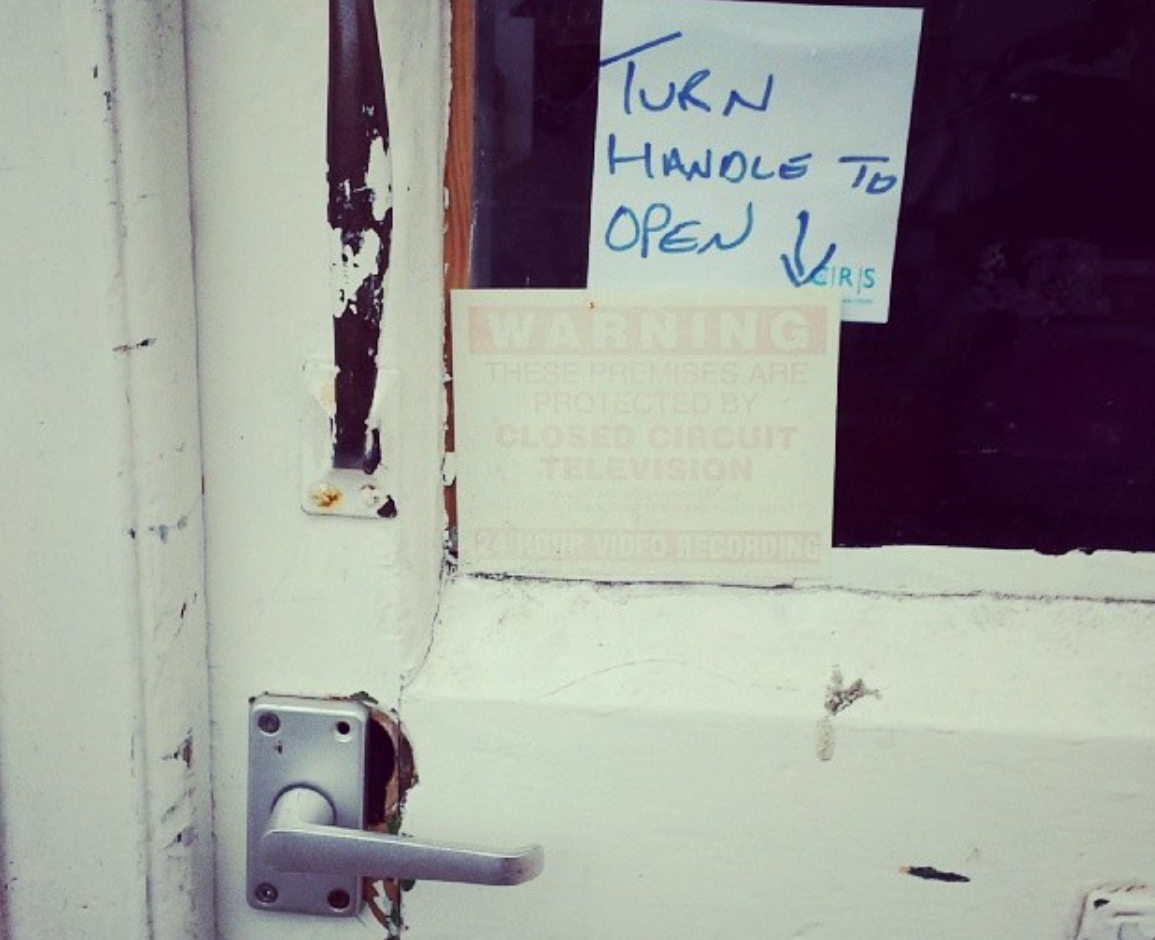 TURN
HANDLE TO
OPEN
C|R|S
WARNING
THESE PREMISES ARE
PROTECTED BY
CLOSED CIRCUIT
TELEVISION
24 HOUR VIDEO RECORDING